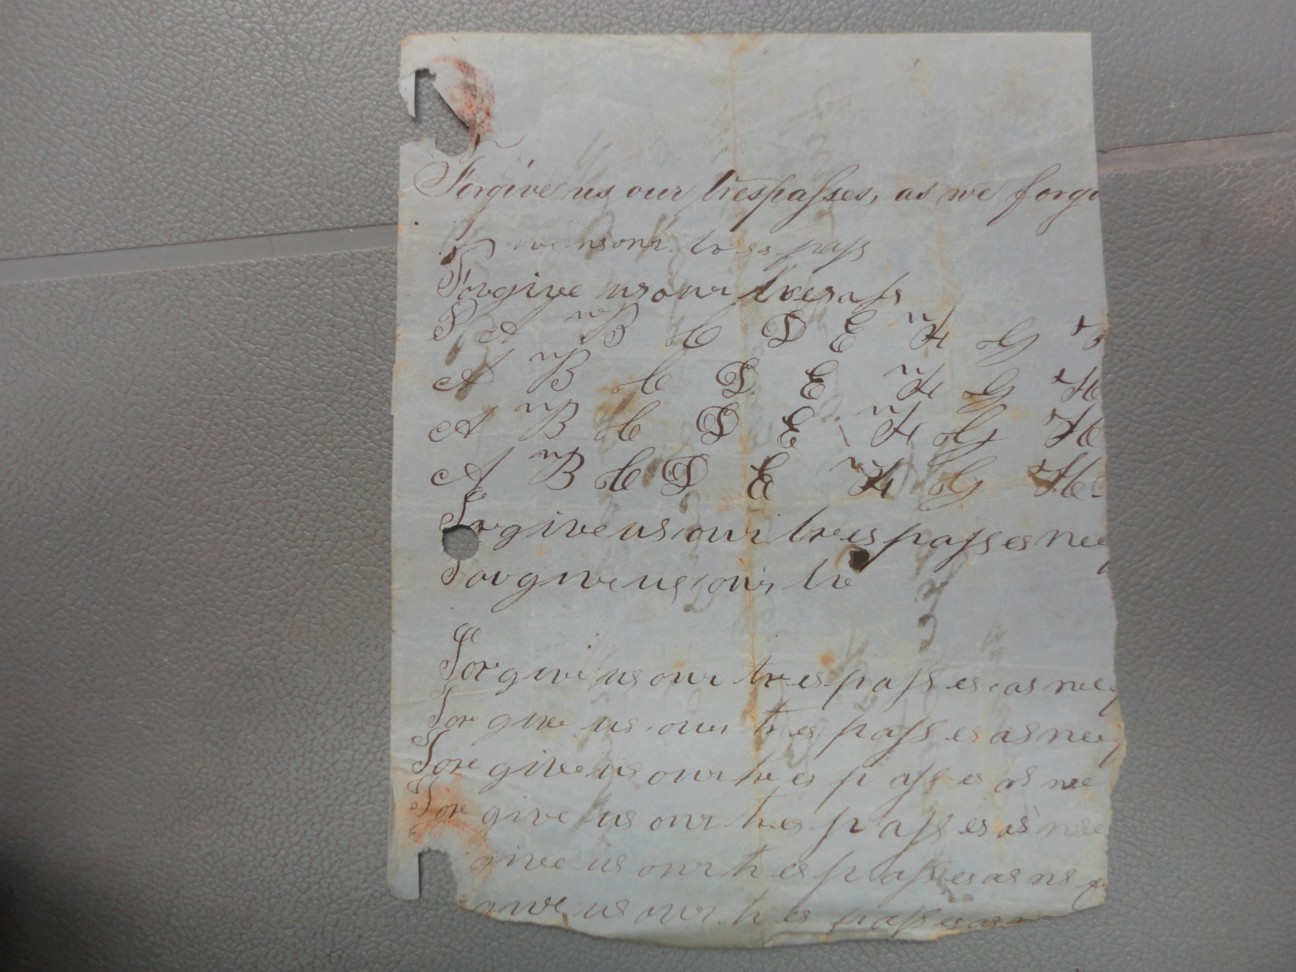 Forgive us our trespasses, as we forgi
F  give us our tres pass
Forgive us our tresass
F A B C D E F G
A B C D E F G H
A B C D E F G H
A B C D E F G H
Forgive us our tres passes as we
Forgive us our tre
Forgive us our tres passes as we
For give us our tres passes as we
For give us our tres p asses as we
For give us our tres p asses as we
give us our tres p asses as we f
give us our tres passes as